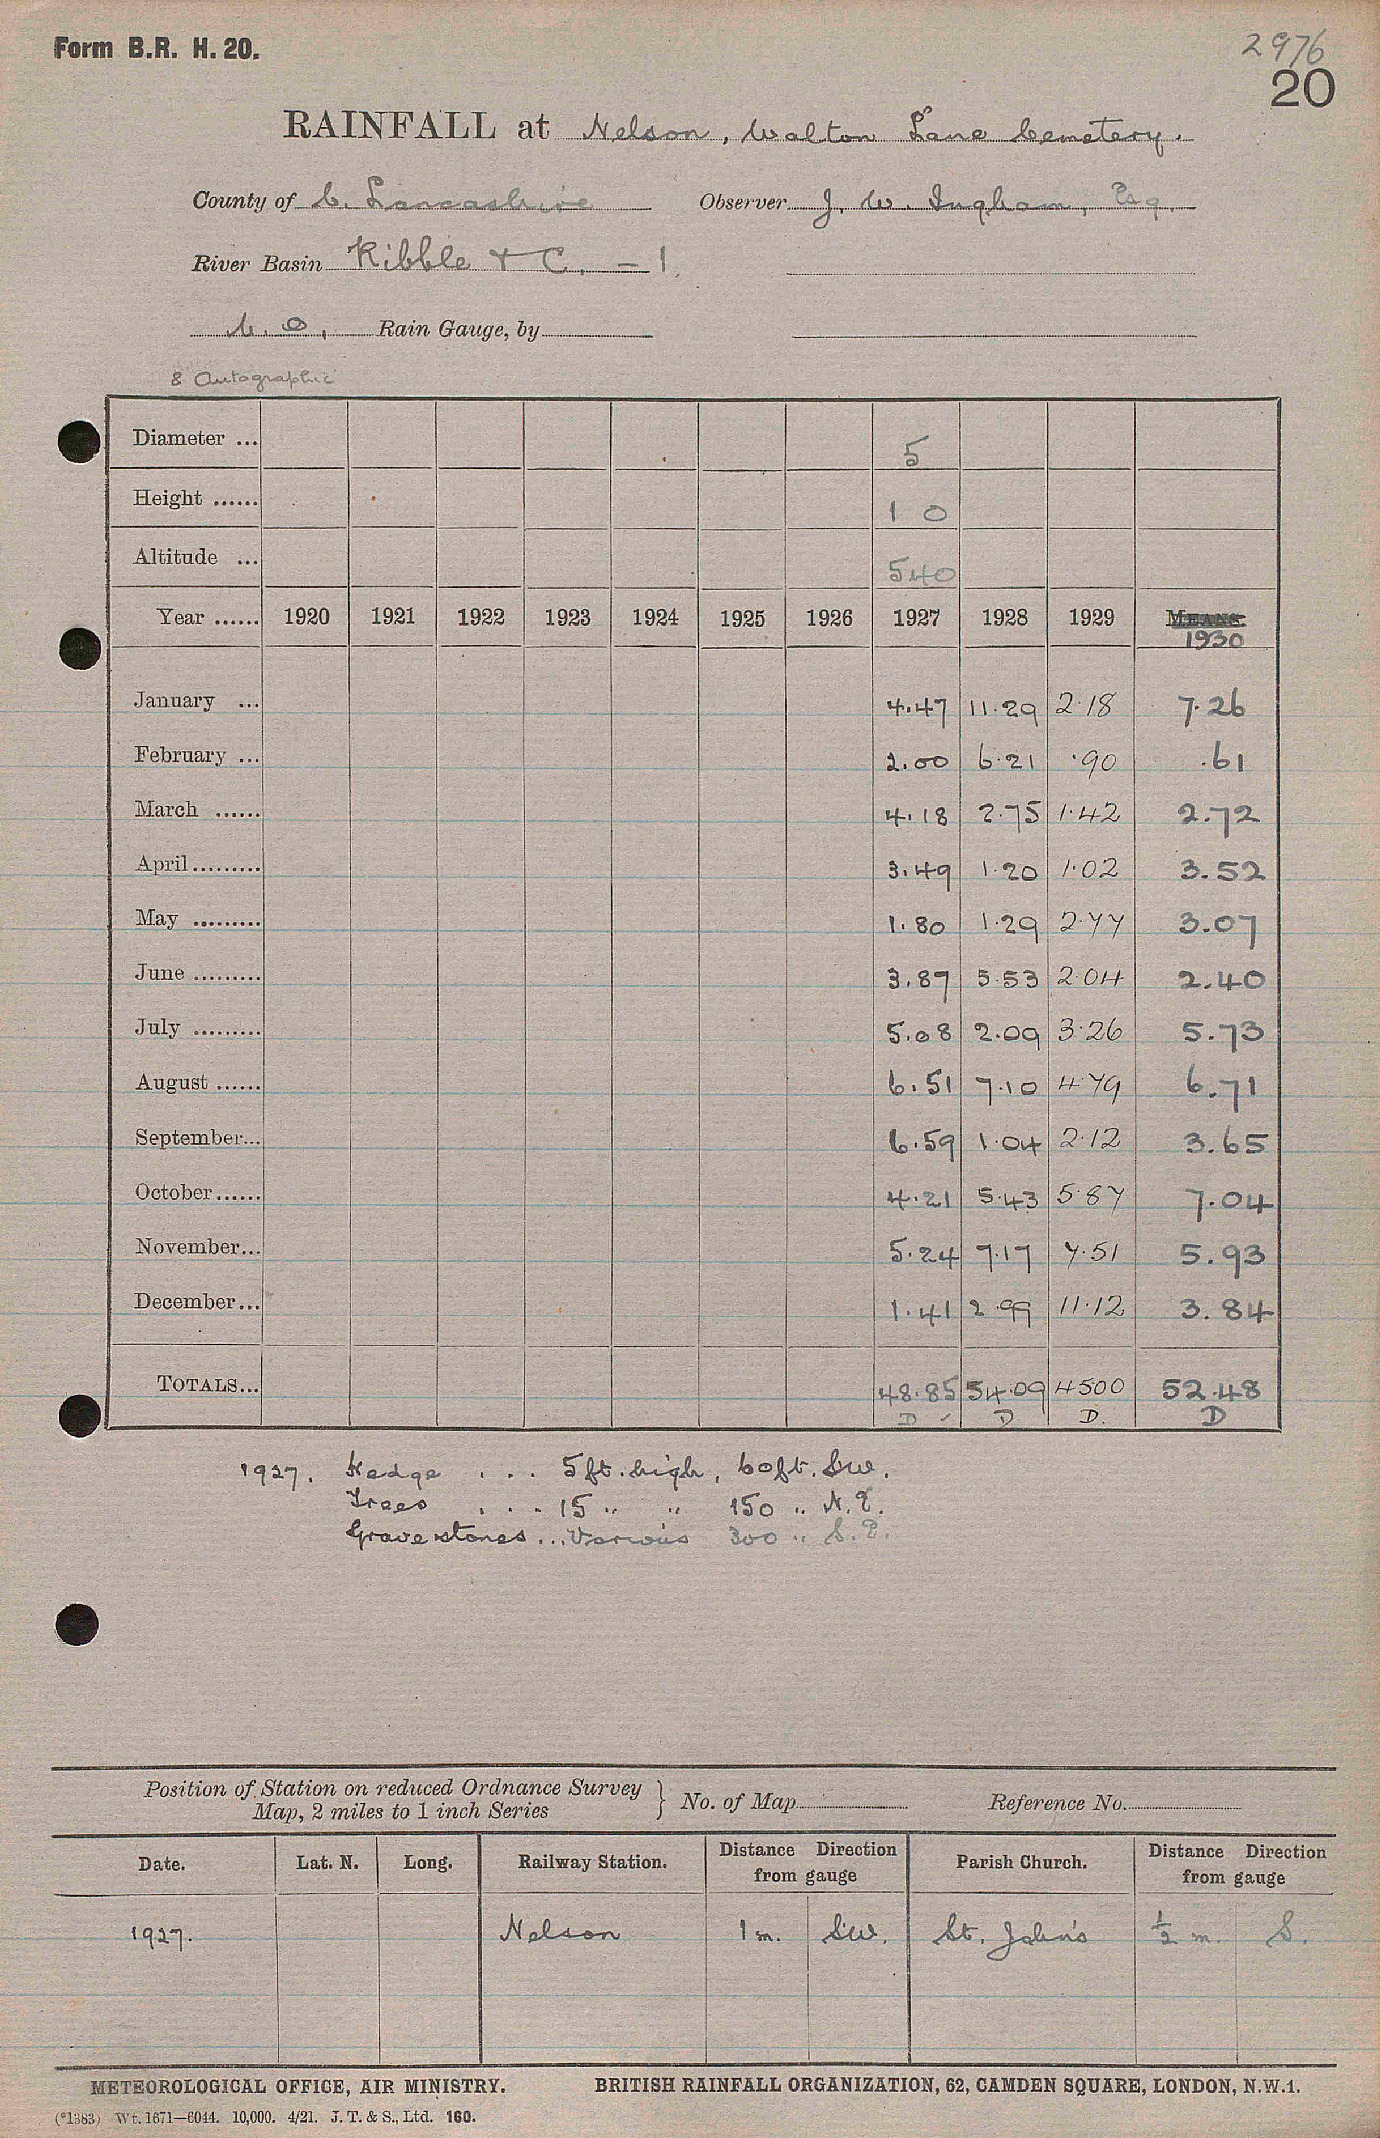 Form B.R. H. 20.
2976
20
RAINFALL at Nelson, Walton Lane Cemetery.
County of C. Lancashire Observer J. W. Ingham, Esq.
River Basin Ribble & C. - 1.
M. O. Rain Gauge, by
8" Autographic
Diameter ... 5
Height ...... 1 0
Altitude ... 540
Year ...... 1920 1921 1922 1923 1924 1925 1926 1927 1928 1929 MEANS.
1930
January ... 4.47 11.29 2.18 7.26
February ... 2.00 6.21 .90 .61
March ...... 4.18 2.75 1.42 2.72
April......... 3.49 1.20 1.02 3.52
May ......... 1.80 1.29 2.77 3.07
June ......... 3.87 5.53 2.04 2.40
July ......... 5.08 2.09 3.26 5.73
August ...... 6.51 7.10 4.79 6.71
September... 6.59 1.04 2.12 3.65
October...... 4.21 5.43 5.87 7.04
November... 5.24 7.17 7.51 5.93
December... 1.41 2.99 11.12 3.84
TOTALS... 48.85 54.09 4500 52.48
D ✓ D D. D
1927. Hedge . . . 5ft. high, 60ft. SW.
Trees . . . 15 " " 150 " N.E.
Gravestones ... Various 300 " S.E.
Position of Station on reduced Ordnance Survey
Map, 2 miles to 1 inch Series } No. of Map Reference No.
Date. Lat. N. Long. Railway Station. Distance Direction from gauge Parish Church. Distance Direction from gauge
1927. Nelson 1 m. SW. St. John's ½ m. S.
METEOROLOGICAL OFFICE, AIR MINISTRY. BRITISH RAINFALL ORGANIZATION, 62, CAMDEN SQUARE, LONDON, N.W.1.
(*1383) Wt. 1671—6044. 10,000. 4/21. J. T. & S., Ltd. 160.